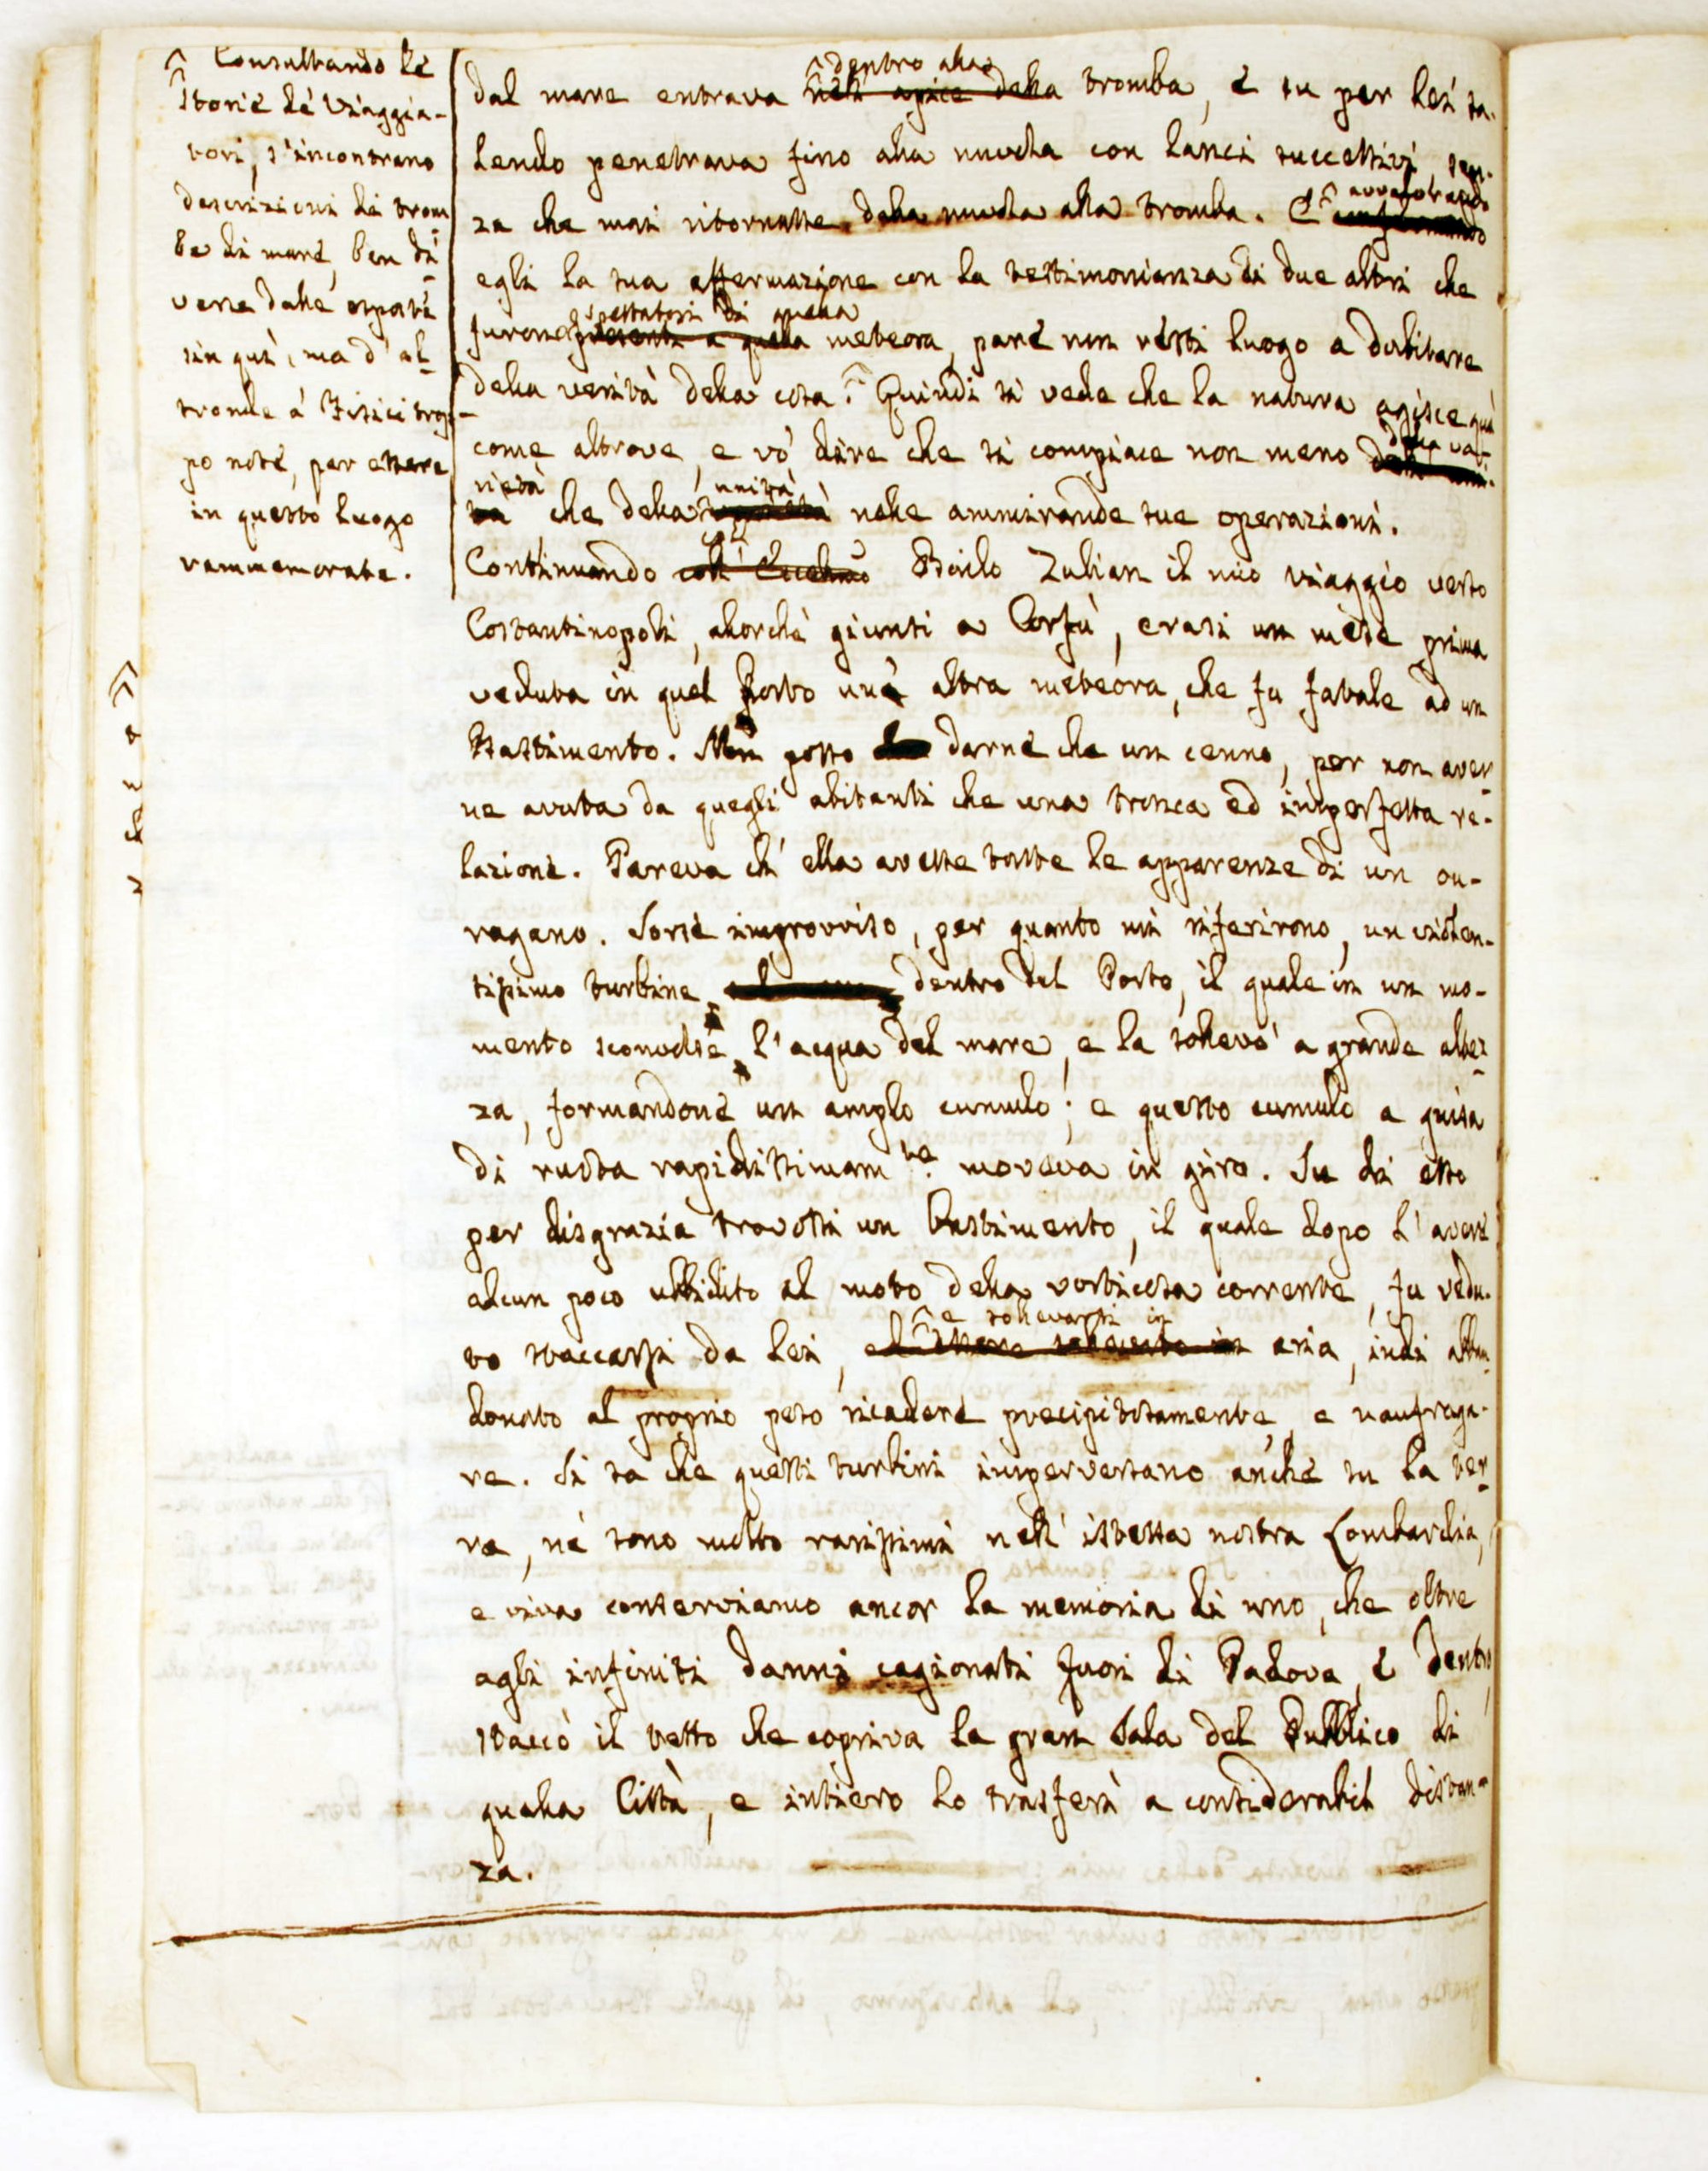 Consultando le
storie de' viaggia-
tori, s'incontrano
descrizioni di trom
be di mare, ben di-
verse dalle esposte
sin qui, ma d'al-
tronde a' Fisici trop-
po note, per essere
in questo luogo
rammemorate.
dentro alla
dal mare entrava nell' apice della tromba, e su per lei sa-
lendo penetrava fino alla nuvola con lanci successivi, sen-
avvalorando
za che mai ritornasse dalla nuvola alla tromba. E confermando
egli la sua affermazione con la testimonianza di due altri che
spettatori di quella
furono presenti a quella meteora, pare non resti luogo a dubitare
della verità della cosa. Quindi si vede che la natura agisce quì
come altrove, e vo' dire che si compiace non meno della va-
rietà unità
che della nelle ammirande sue operazioni.
Continuando coll' Eccelmo Bailo Zulian il mio viaggio verso
Costantinopoli, allorchè giunti a Corfù, erasi un mese prima
veduta in quel Porto un' altra meteora, che fu fatale ad un
Bastimento. Non posso darne che un cenno, per non aver
ne avuta da quegli abitanti che una tronca ed imperfetta re-
lazione. Pareva ch' ella avesse tutte le apparenze di un ou-
ragano. Sorse improvviso, per quanto mi riferirono, un violen-
tissimo turbine dentro del Porto, il quale in un mo-
mento sconvolse l'acqua del mare, e la sollevò a grande altez
za, formandone un amplo cumulo; e questo cumulo a guisa
di ruota rapidissimam.te moveva in giro. Su di esso
per disgrazia trovossi un bastimento, il quale dopo l'avere
alcun poco ubbidito al moto della vorticosa corrente, fu vedu-
e sollevarsi in
to staccarsi da lei, ed essere sollevato in aria, indi abban
donato al proprio peso ricadere precipitosamente, e naufraga-
re. Si sa che questi turbini imperversano anche su la ter
ra, nè sono molto rarissimi nell' istessa nostra Lombardia,
e viva conserviamo ancor la memoria di uno, che oltre
agli infiniti danni cagionati fuori di Padova, e dentro,
staccò il tetto che copriva la gran Sala del Pubblico di
quella Città, e intiero lo trasferì a considerabil distan-
za.